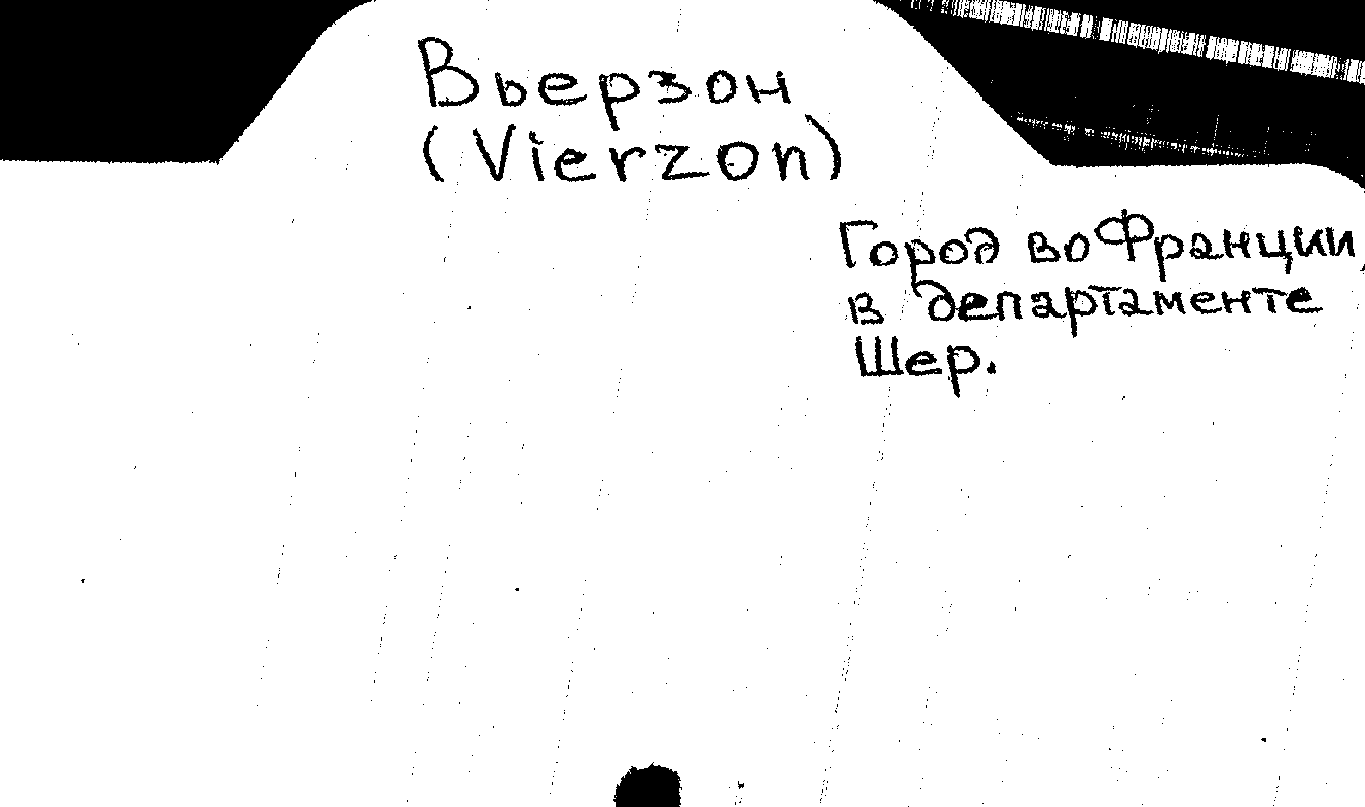 Вьерзон
(Vierzon)
Город во Франции,
в департаменте
Шер.